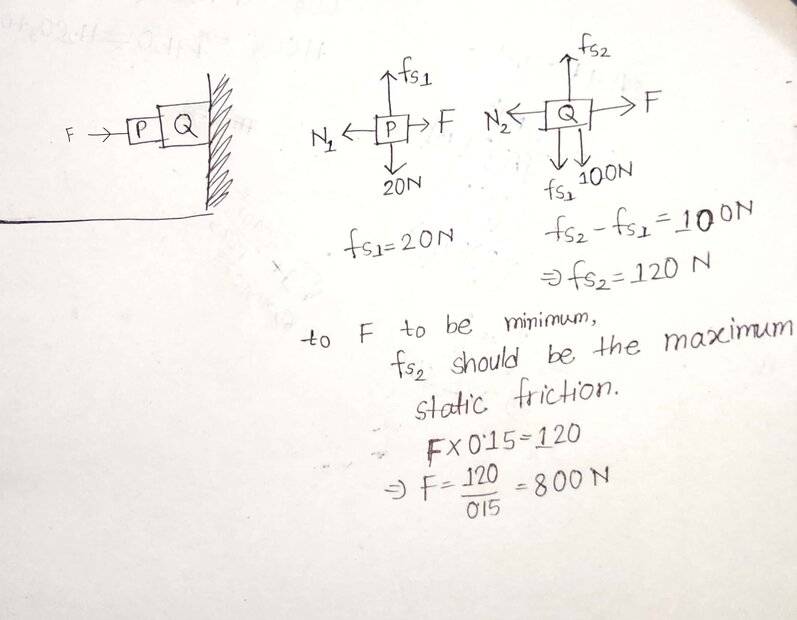 F → P Q
fs1
N1 ← P → F
20N
fs1 = 20N
fs2
N2 ← Q → F
fs1 100N
fs2 - fs1 = 100N
⇒ fs2 = 120 N
to F to be minimum,
fs2 should be the maximum
static friction.
F × 0.15 = 120
⇒ F = 120/015 = 800 N